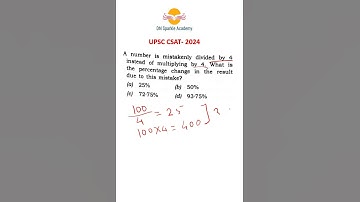 DN Sparkle Academy
UPSC CSAT- 2024
A number is mistakenly divided by 4
instead of multiplying by 4. What is
the percentage change in the result
due to this mistake?
(a) 25% (b) 50%
(c) 72·75% (d) 93·75%
100/4 = 25
100×4 = 400 ] ? .